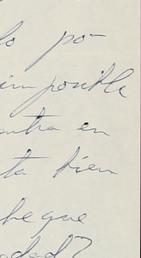 lo po-
imposible
entra en
ta bien
he que